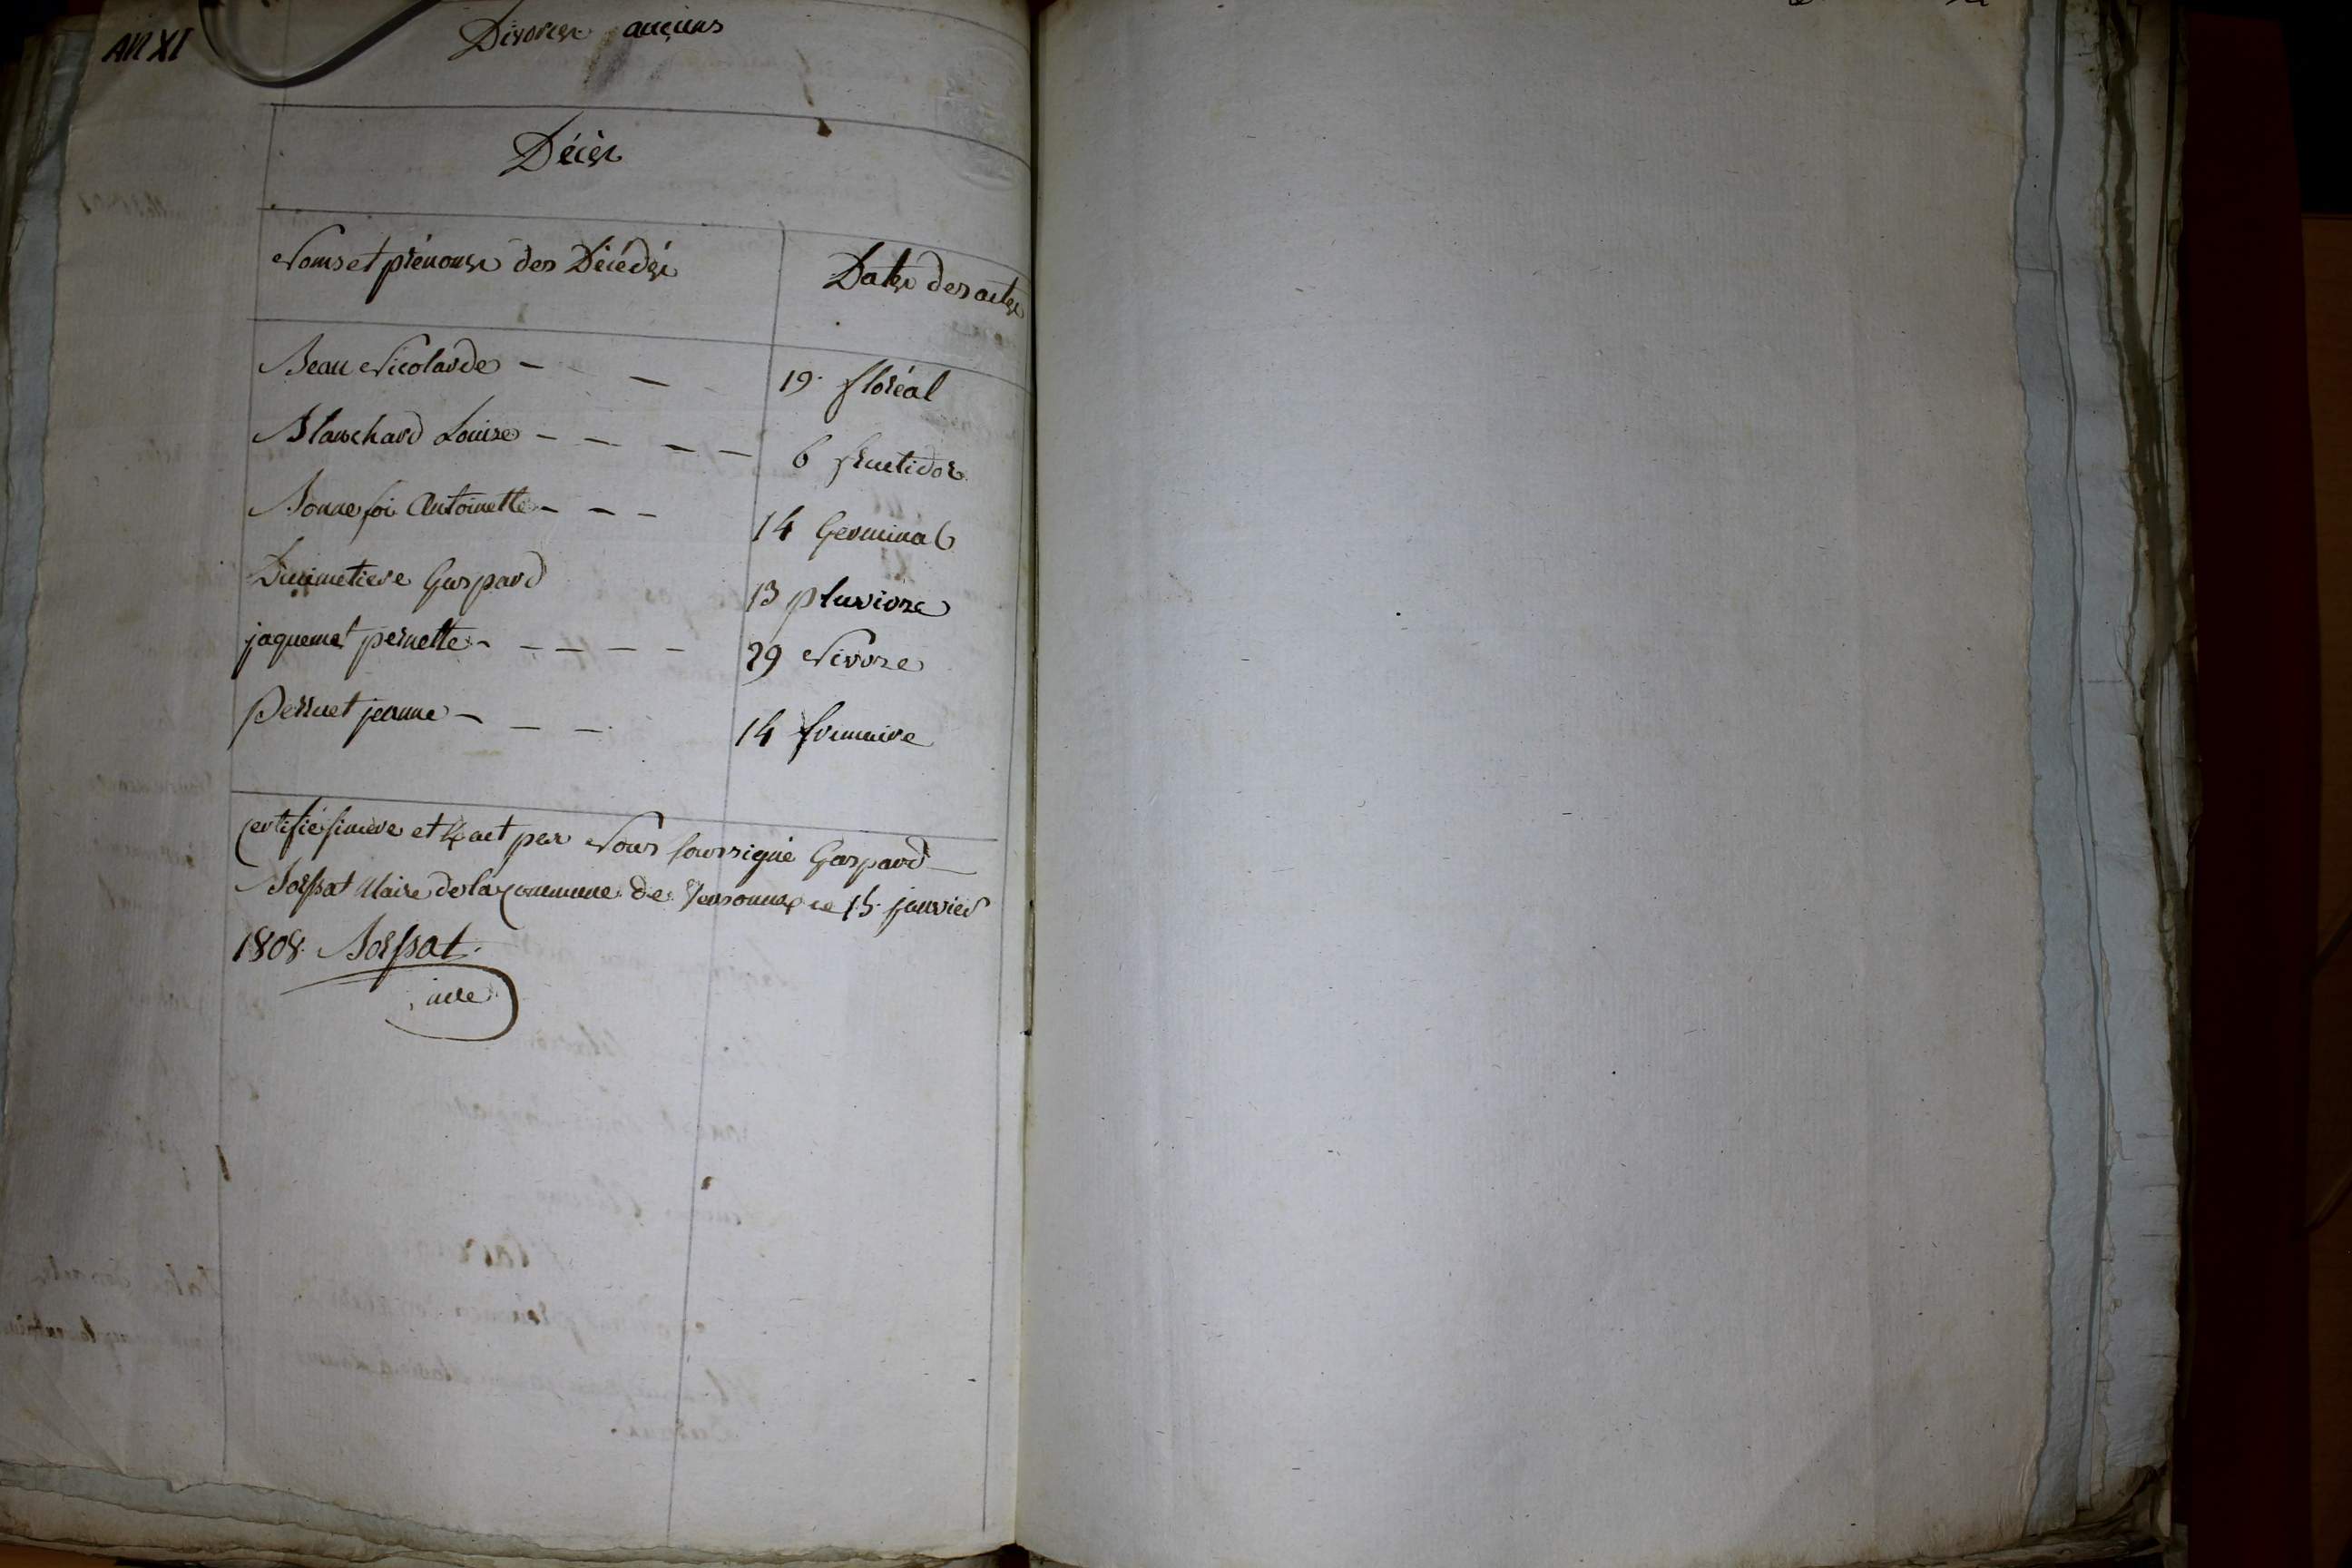 AN XI
Divorces aucuns
Décès
Noms et prénoms des Décédés
Dates des actes
Beau Nicolarde - - 19. floréal
Blanchard Louise - - - - 6 fructidor
Bonnefoi Antoinette - - - 14 Germinal
Dumetiere Gaspard 13 pluviose
jaquemet pernette - - - - - 29 Nivose
Perruet jeanne - - - 14 frimaire
Certifié sincere et Exact par Nous soussigné Gaspard
Maire de la Commune de ce 15 janvier
1808.